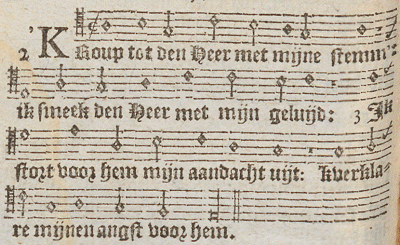 2 'K Roup tot den Heer met mijne stemm':
ik smeek den Heer met mijn geluijd: 3 Ik
stort voor hem mijn aandacht uijt: kverkla-
re mijnen angst voor hem.